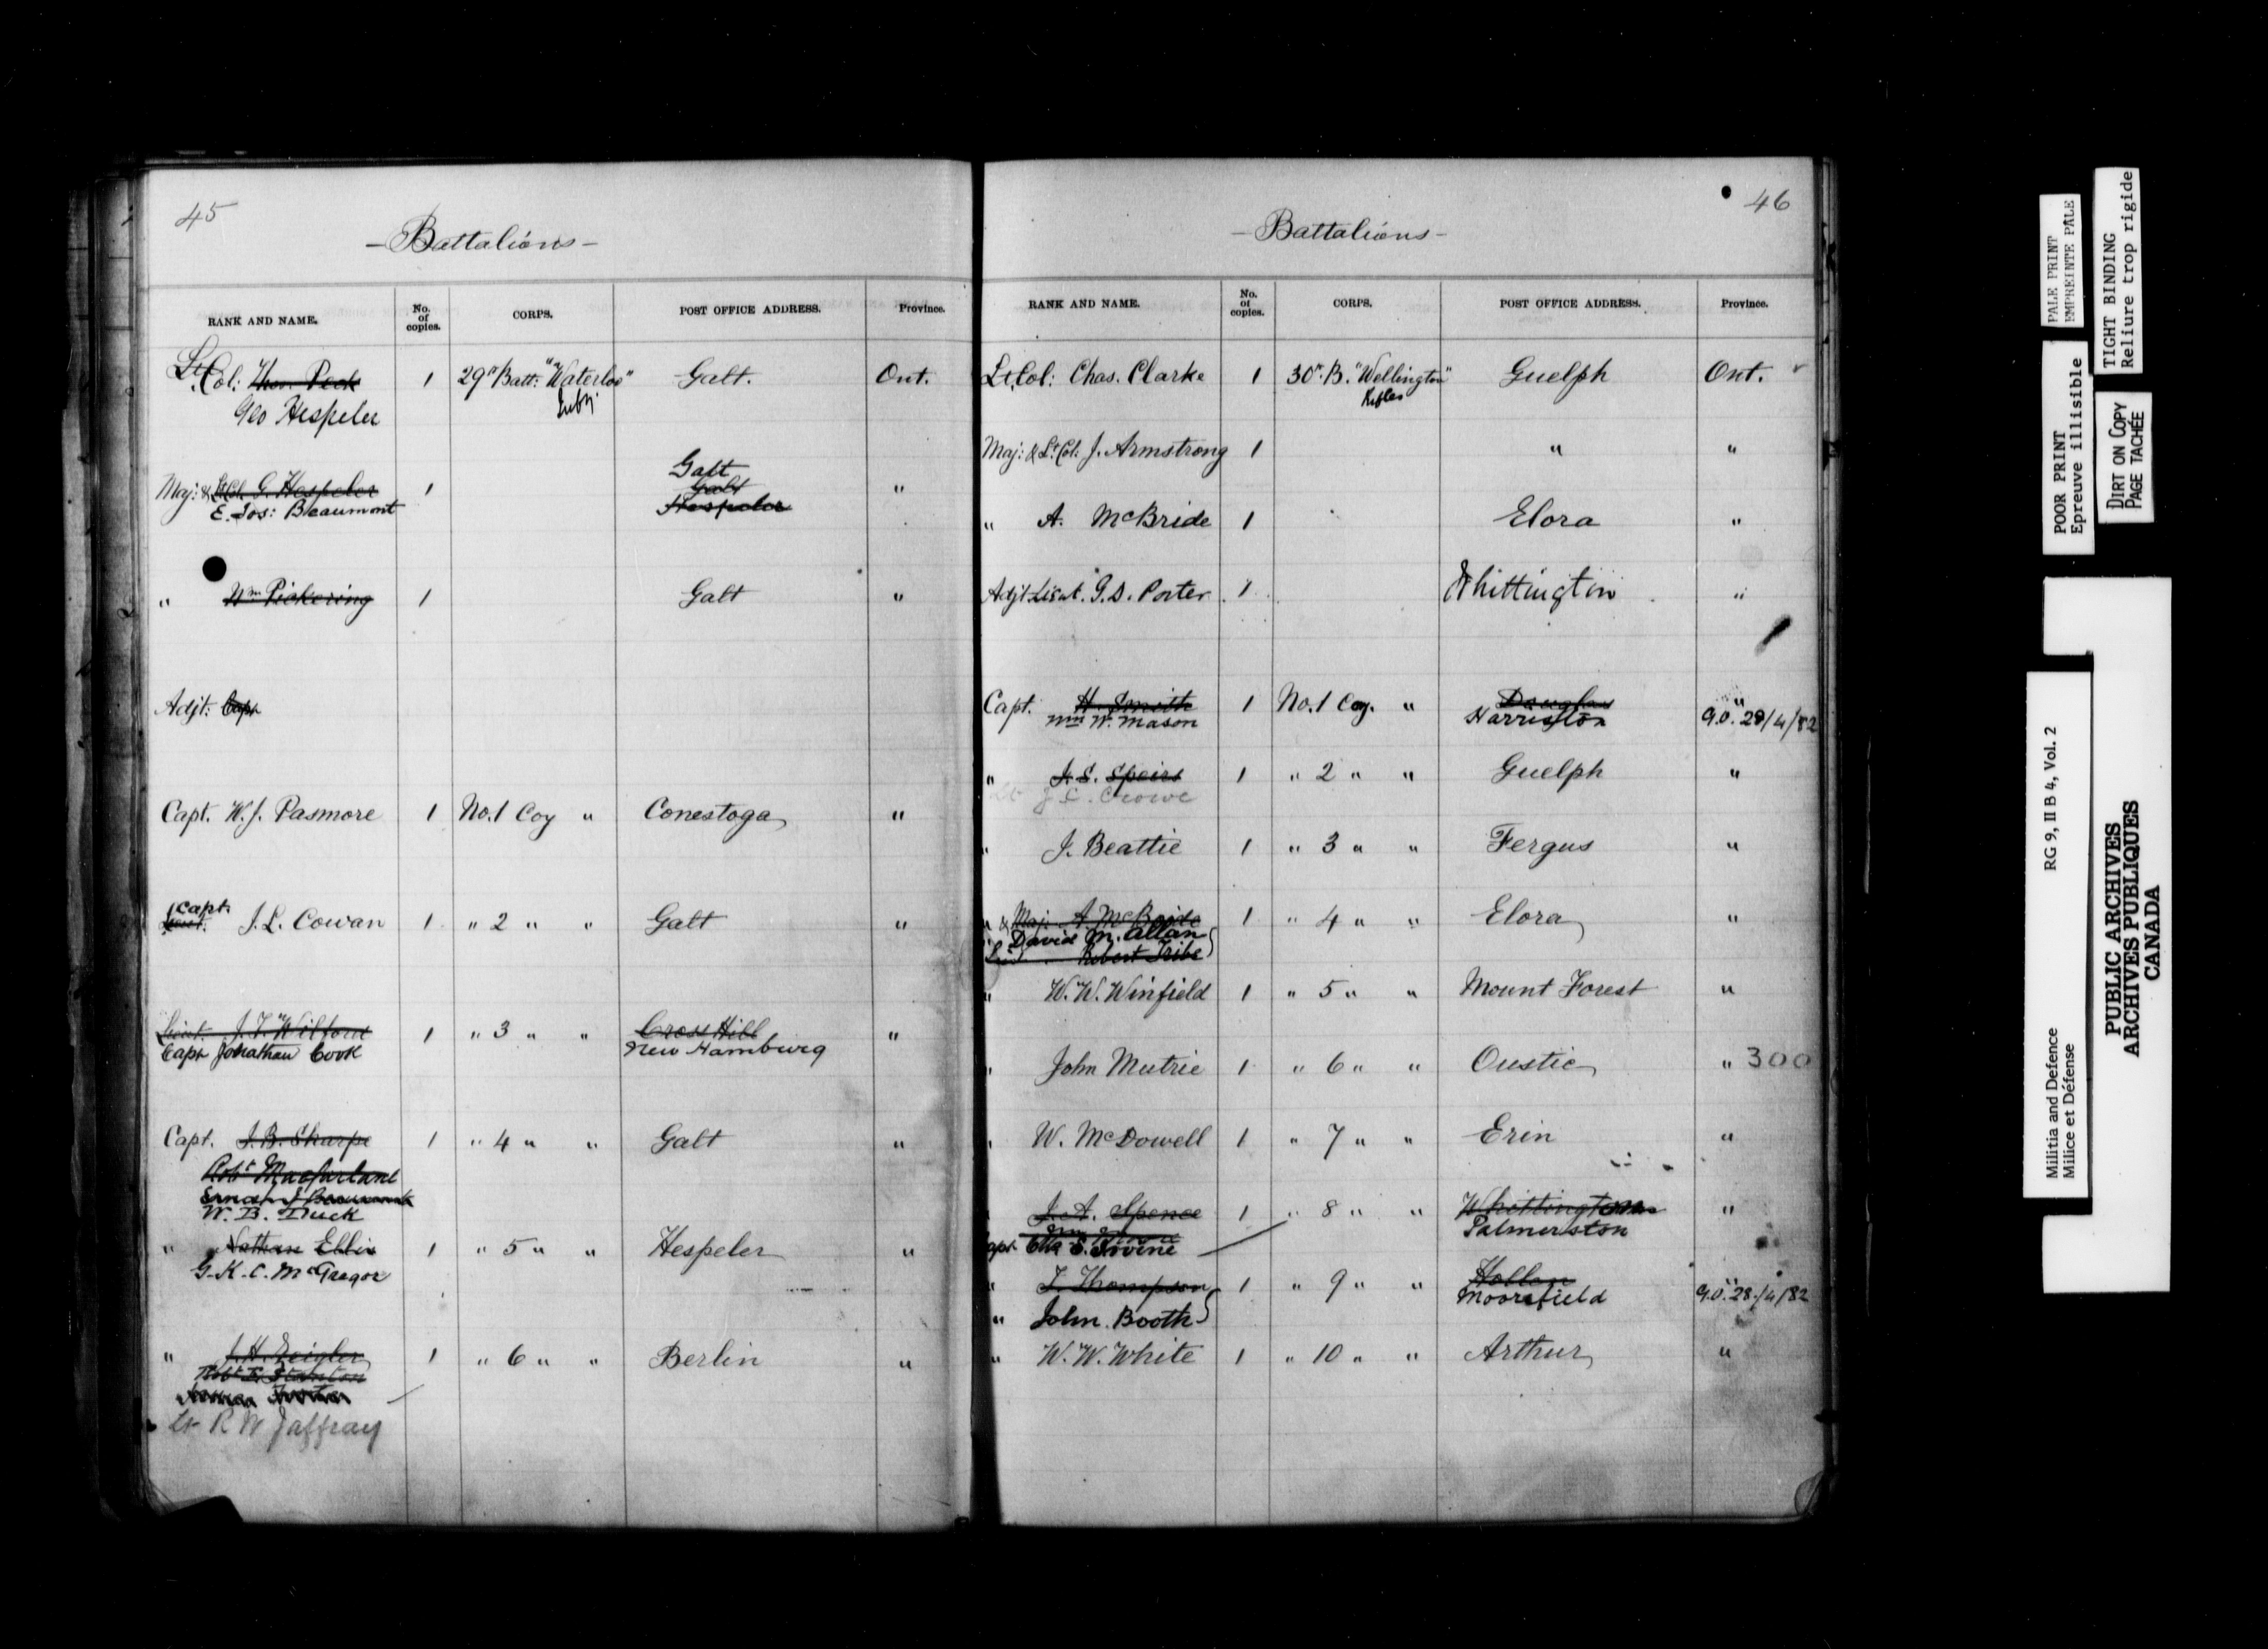 45
- Battalions -
RANK AND NAME. No. of copies. CORPS. POST OFFICE ADDRESS. Province.
Lt. Col: Thos. Peck 1 29" Batt: "Waterloo" Galt. Ont.
Geo Hespeler Infy.
Galt
Maj: & Lt Col. G. Hespeler 1 Galt "
E. Jos: Beaumont Hespeler
" Wm Pickering 1 Galt "
Adjt: Capt
Capt. W. J. Pasmore 1 No. 1 Coy " Conestoga "
Capt.
Lieut. J. L. Cowan 1 " 2 " " Galt "
Lieut. J. T. Wilford 1 " 3 " " Cross Hill "
Capt Jonathan Cook New Hamburg
Capt. J. B. Sharpe 1 " 4 " " Galt "
Robt Macfarlane
Ernest J Beaumont
W. B. Duck
" Nathan Ellis 1 " 5 " " Hespeler "
G. K. C. McGregor
" J. H. Zeigler 1 " 6 " " Berlin "
Robt
Lt R W Jaffray
46
- Battalions -
RANK AND NAME. No. of copies. CORPS. POST OFFICE ADDRESS. Province.
Lt. Col: Chas. Clarke 1 30". B. "Wellington" Guelph Ont.
Rifles
Maj: & Lt. Col: J. Armstrong 1 " "
" A. McBride 1 Elora "
Adjt. Lieut. G. D. Porter 1 Whittington "
Capt. H. Smith 1 No. 1 Coy. " Douglas "
Wm W. Mason Harriston G.O. 28/4/82
" J. S. Speirs 1 " 2 " " Guelph "
J C. Crowe
" J. Beattie 1 " 3 " " Fergus "
" & Maj: A. McBride 1 " 4 " " Elora "
" David M. Allan
Robert Tribe
" W. W. Winfield 1 " 5 " " Mount Forest "
" John Mutrie 1 " 6 " " Oustic " 300
" W. McDowell 1 " 7 " " Erin "
J. A. Spence 1 " 8 " " Whittington "
Palmerston
Capt. S. Irvine
" T. Thompson 1 " 9 " " Hollen "
Moorefield G.O. 28/4/82
" John Booth
" W. W. White 1 " 10 " " Arthur "
PALE PRINT
EMPREINTE PALE
TIGHT BINDING
Reliure trop rigide
POOR PRINT
Epreuve illisible
DIRT ON COPY
PAGE TACHÉE
RG 9, II B 4, Vol. 2
Militia and Defence
Milice et Défense
PUBLIC ARCHIVES
ARCHIVES PUBLIQUES
CANADA